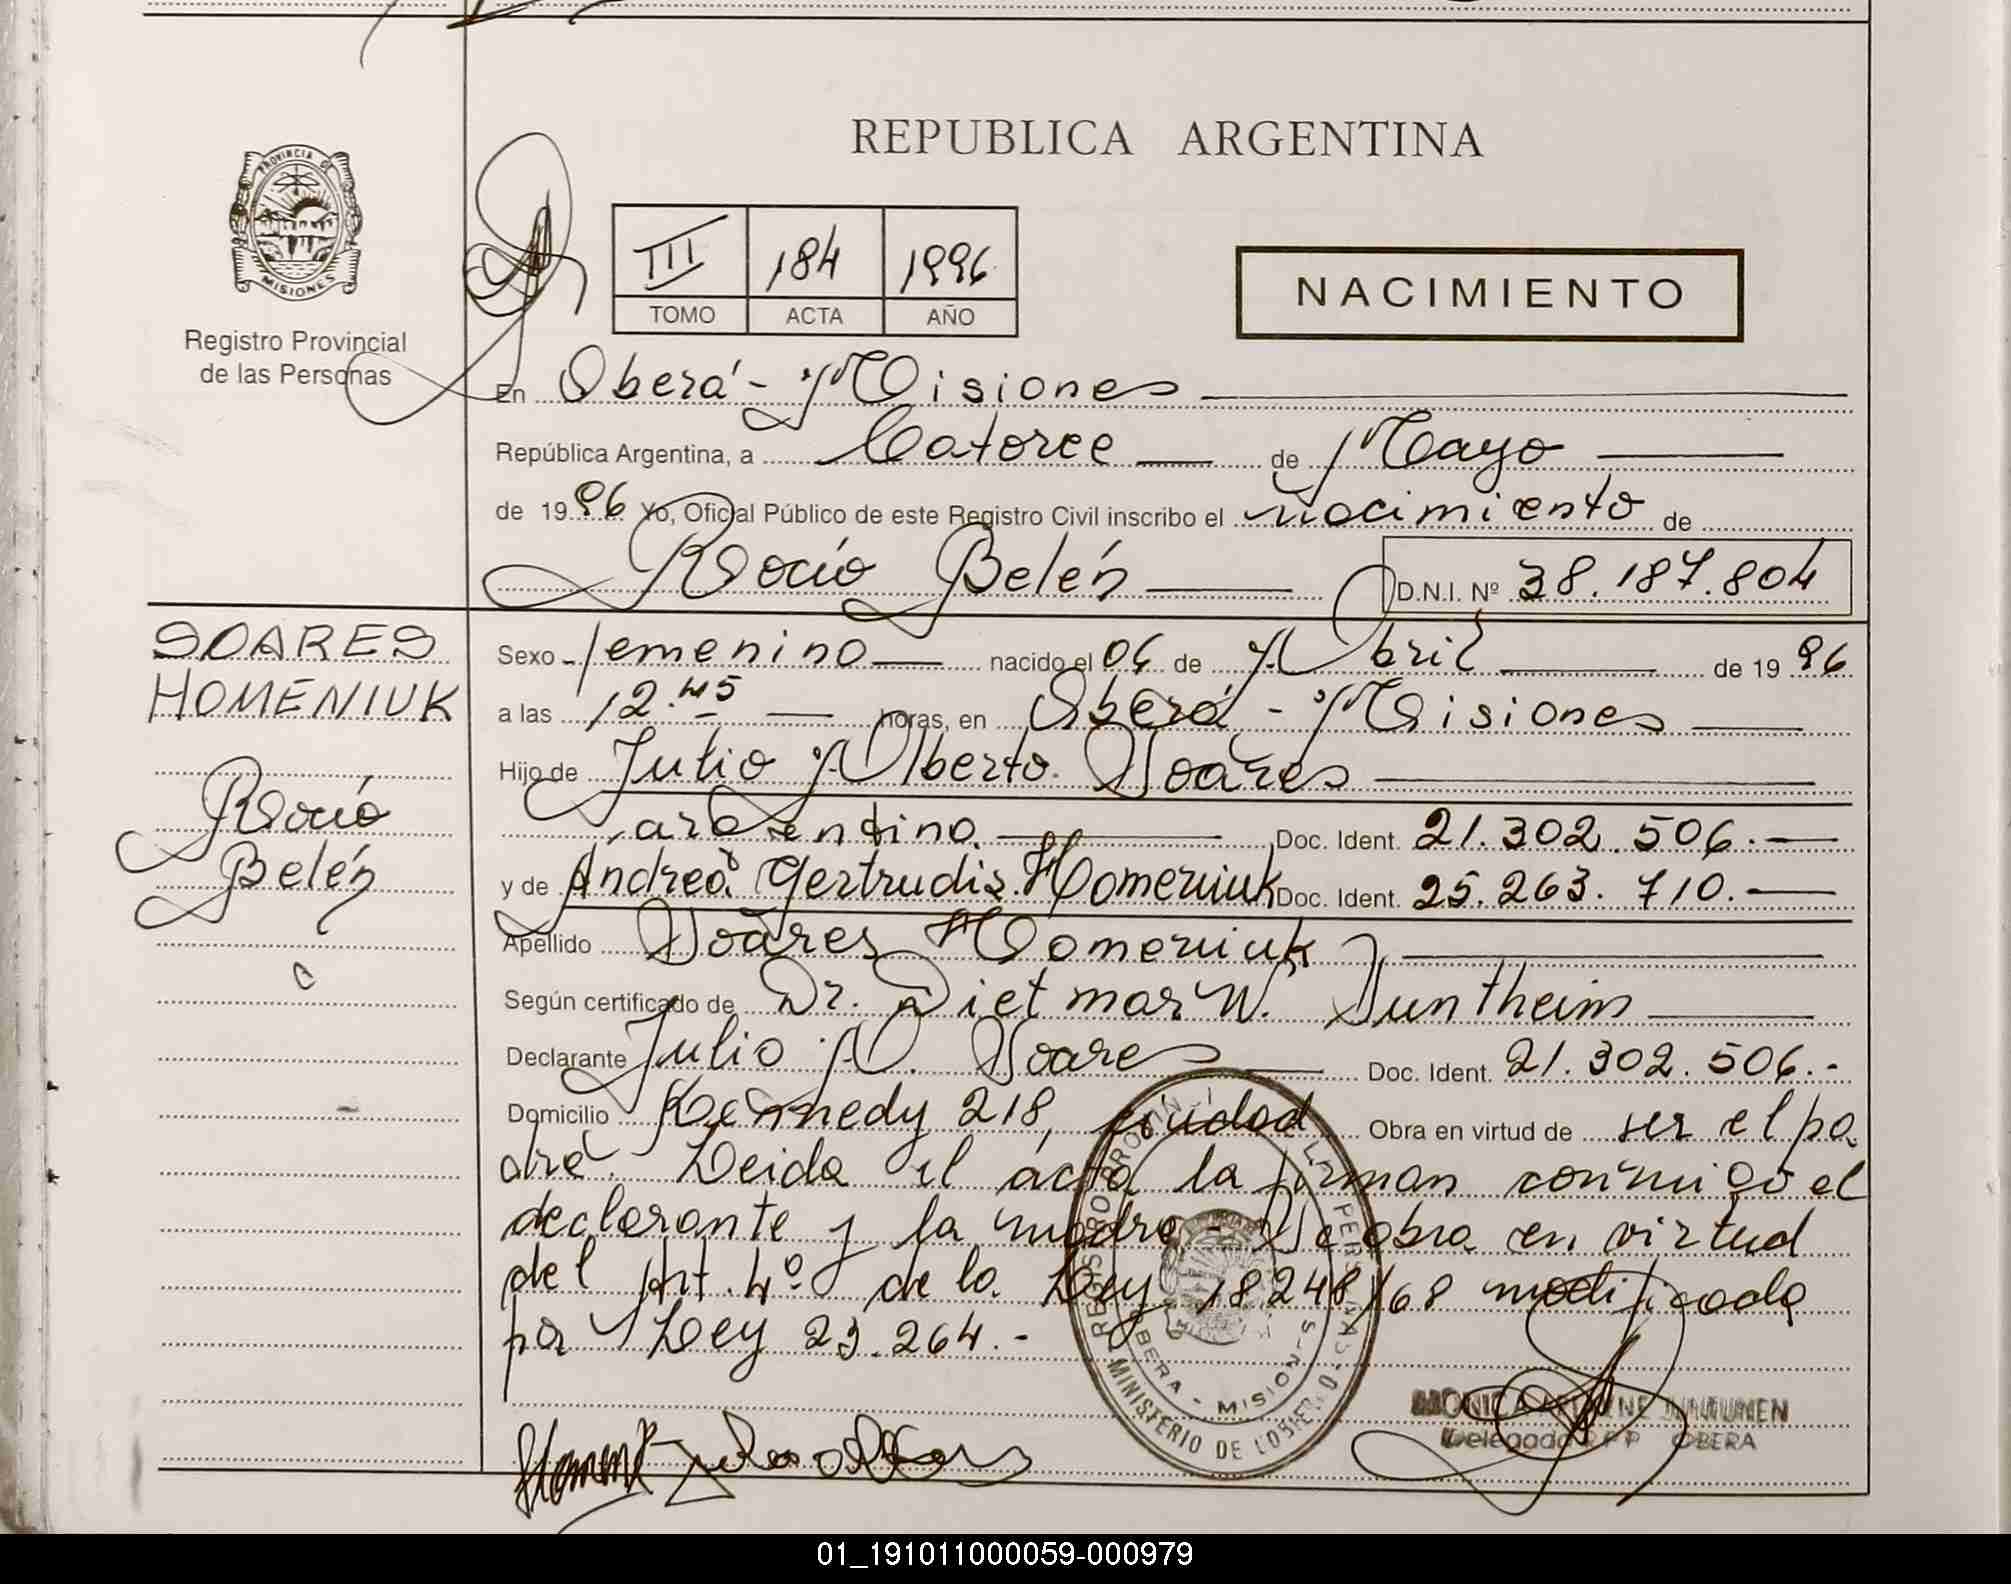 REPUBLICA ARGENTINA
PROVINCIA DE
MISIONES
Registro Provincial
de las Personas
III 184 1996
TOMO ACTA AÑO
NACIMIENTO
En Oberá - Misiones
República Argentina, a Catorce de Mayo
de 1996 Yo, Oficial Público de este Registro Civil inscribo el nacimiento de
Rocío Belén D.N.I. Nº 38.187.804
SOARES
HOMENIUK
Rocío
Belén
Sexo femenino nacido el 06 de Abril de 1996
a las 12.45 horas, en Oberá - Misiones
Hijo de Julio Alberto Soares
argentino. Doc. Ident. 21.302.506.-
y de Andrea Gertrudis Homeniuk Doc. Ident. 25.263.710.-
Apellido Soares Homeniuk
Según certificado de Dr. Dietmar W. Suntheim
Declarante Julio A. Soares Doc. Ident. 21.302.506.-
Domicilio Kennedy 218, ciudad Obra en virtud de ser el pa
dre. Leida el acta la firman conmigo el
declarante y la madre - Se obra en virtud
del Art. 4º de la Ley 18248/68 modificada
por Ley 23.264.-
OBERA - MISIONES
MINISTERIO DE GOBIERNO
Delegada RPP OBERA
01_191011000059-000979